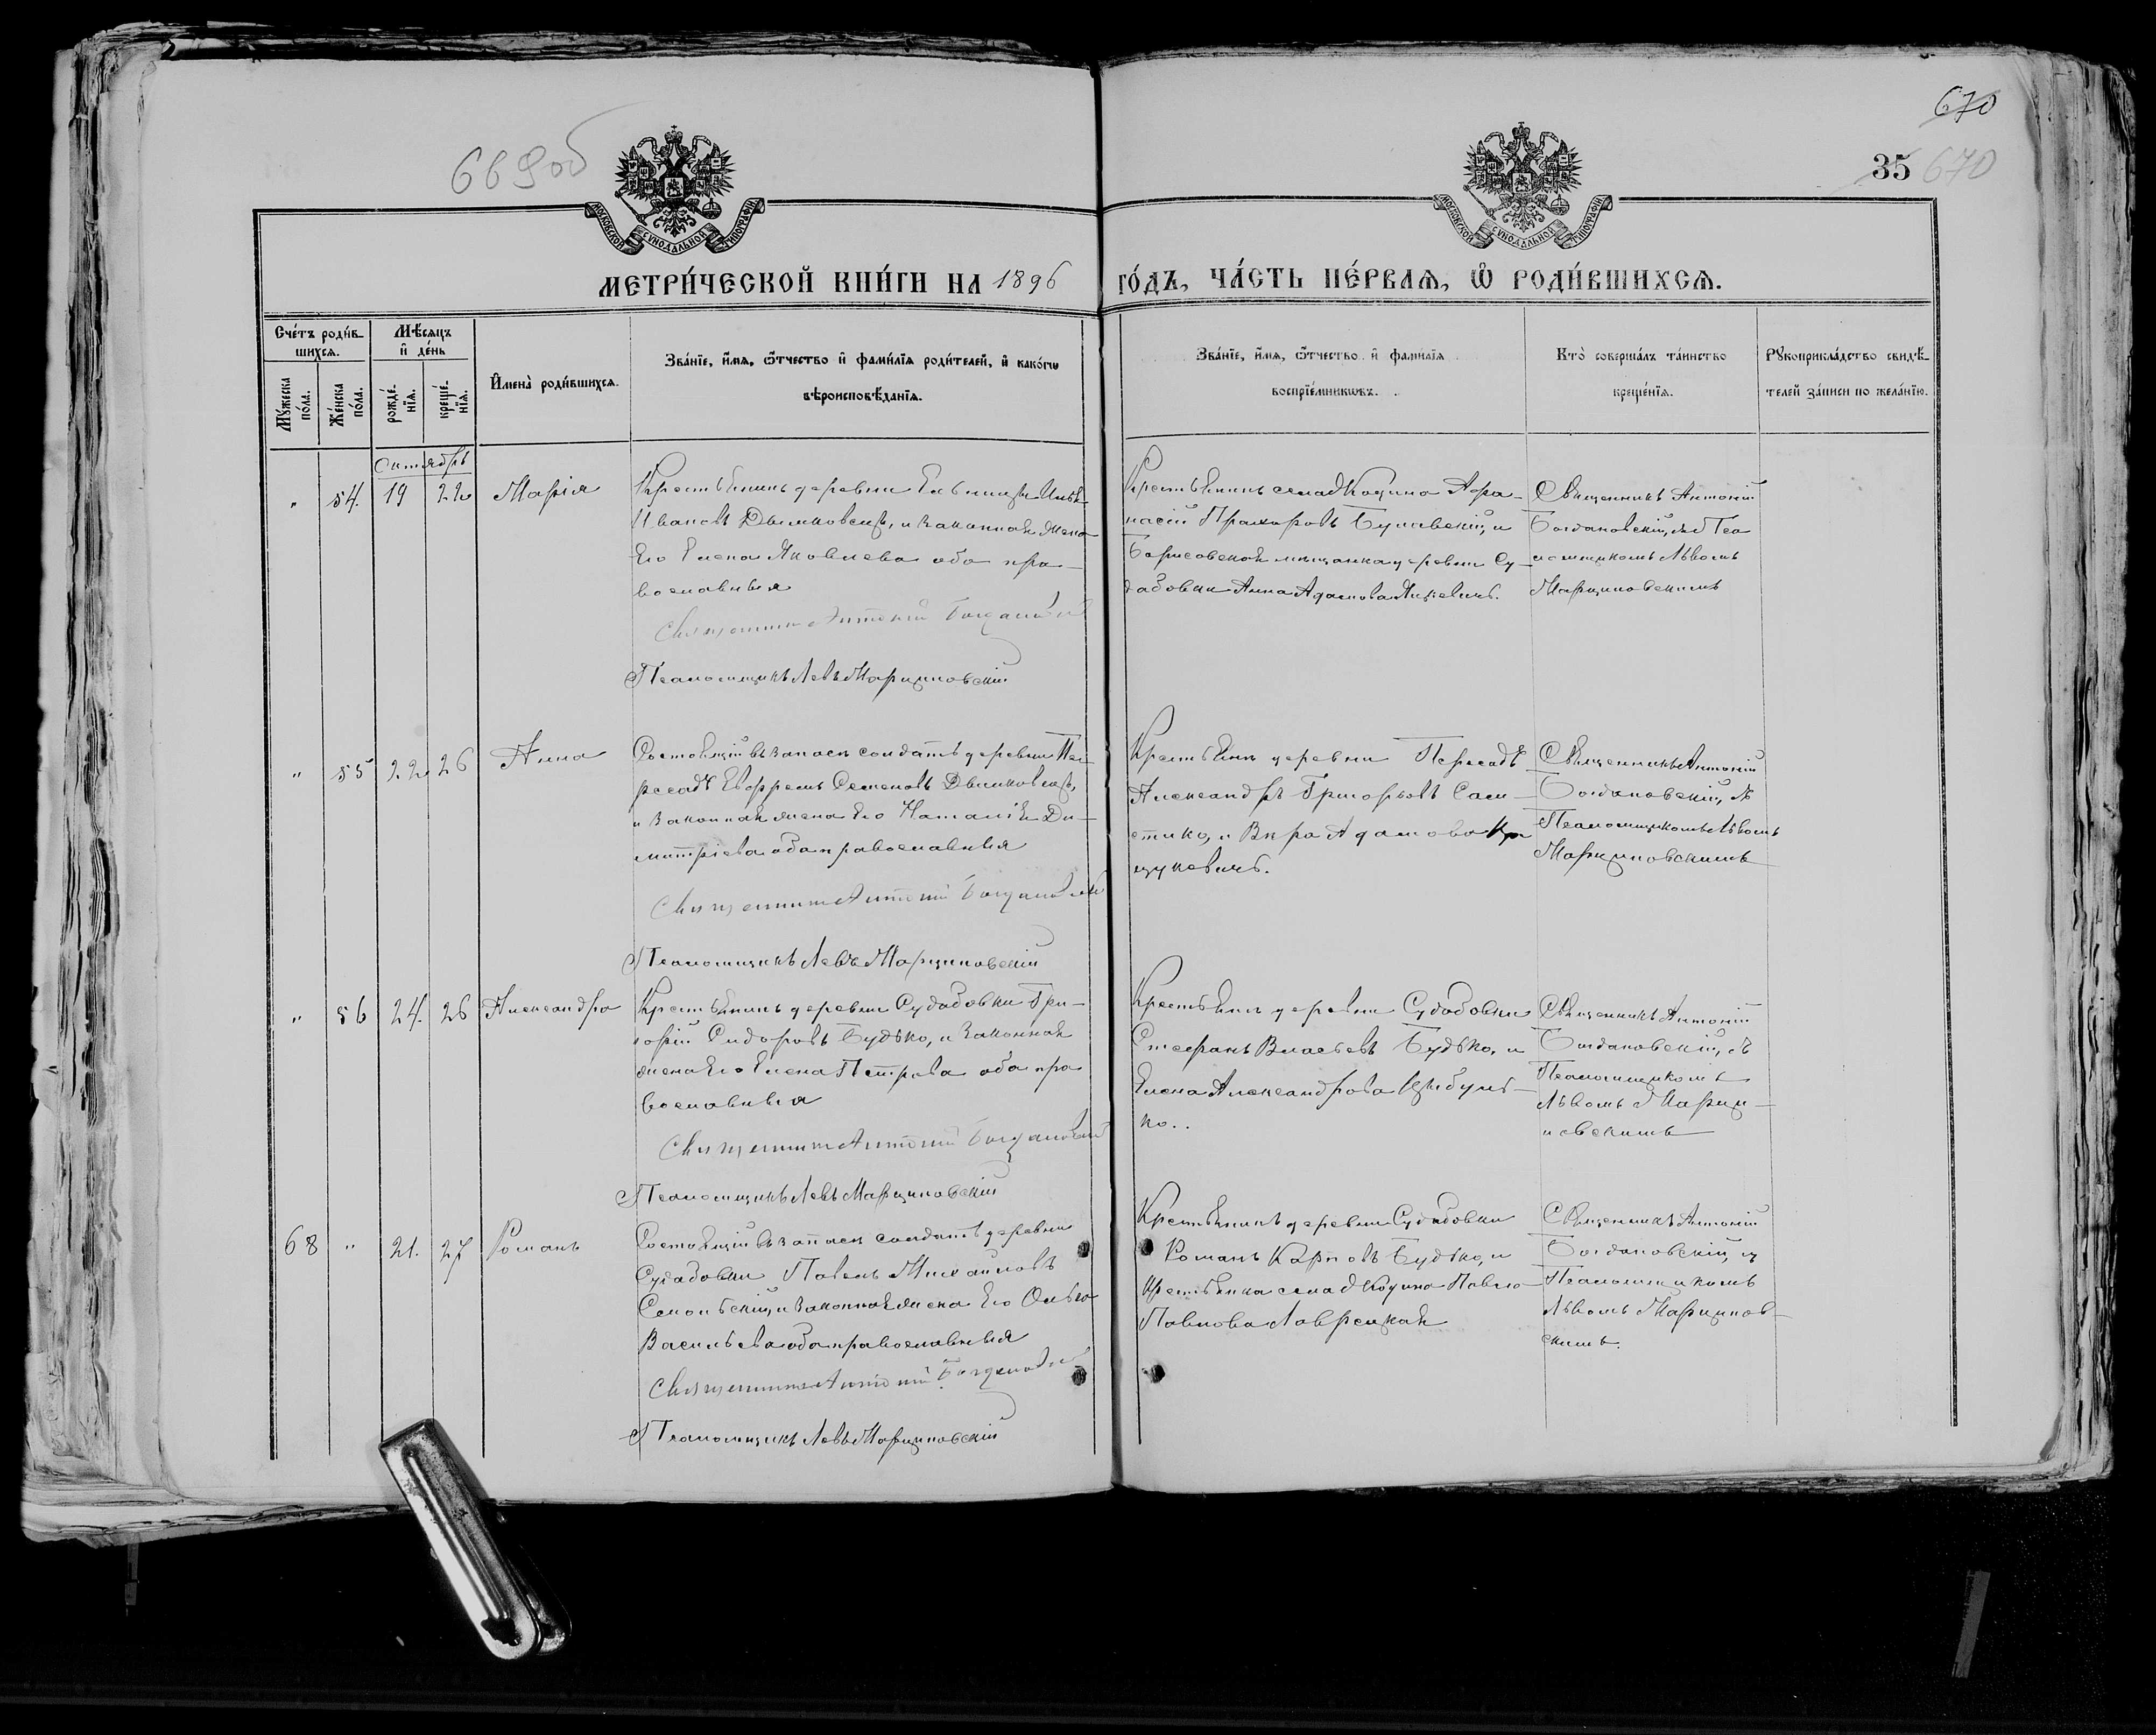 669 об
670
35 670
МОСКОВСКОЙ СѴНОДАЛЬНОЙ ТИПОГРАФІИ
МОСКОВСКОЙ СѴНОДАЛЬНОЙ ТИПОГРАФІИ
МЕТРИ́ЧЕСКОЙ КНИ́ГИ НА 1896 ГО́ДЪ, ЧА́СТЬ ПЕ́РВАѦ, Ѽ РОДИ́ВШИХСѦ.
Сче́тъ роди́в-
шихсѧ.
Мꙋ́жеска
по́ла.
Же́нска
по́ла.
Мѣ́сѧцъ
и҆ де́нь
рожде́-
нїѧ.
креще́-
нїѧ.
И҆мена̀ роди́вшихсѧ.
Зва́нїе, и҆́мѧ, ѻ҆́тчество и҆ фами́лїѧ роди́телей, и҆ како́гѡ
вѣроисповѣ́данїѧ.
Зва́нїе, и҆́мѧ, ѻ҆́тчество и҆ фами́лїѧ
воспрїе́мникѡвъ.
Кто̀ соверша́лъ та́инство
креще́нїѧ.
Рꙋкоприкла́дство свидѣ́-
телей за́писи по жела́нїю.
Октябрь
" 54. 19 22 Марія
Крестьянинъ деревни
Ивановъ Дымковецъ, и законная жена
его Елена Яковлева оба пра-
вославныя
Священникъ Антоній Богдановскій
Псаломщикъ Левъ Марциновскій
Крестьянинъ села Кодина Афа-
насій Прохоровъ и
Борисовская мещанка деревни Су-
добовки Анна Адамова
Священникъ Антоній
Богдановскій, съ Пса
ломщикомъ Львомъ
Марциновскимъ
" 55 22 26 Анна
Состоящій въ запасѣ солдатъ деревни Пе-
ресадъ Евфремъ Семеновъ Дымковецъ,
и законная жена его Наталія Ди-
митріева оба православныя
Священникъ Антоній Богдановскій
Псаломщикъ Левъ Марциновскій
Крестьянинъ деревни Пересадъ
Александръ Григорьевъ
и Вѣра Адамова
Священникъ Антоній
Богдановскій, съ
Псаломщикомъ Львомъ
Марциновскимъ
" 56 24. 26 Александра
Крестьянинъ деревни Судобовки Гри-
горій Сидоровъ Будько, и законная
жена его Елена Петрова оба пра
вославныя
Священникъ Антоній Богдановскій
Псаломщикъ Левъ Марциновскій
Крестьянинъ деревни Судобовки
Стефанъ Власьевъ Будько, и
Елена Александрова Цыбуль-
ко..
Священникъ Антоній
Богдановскій, съ
Псаломщикомъ
Львомъ Марци-
новскимъ
68 " 21. 27 Романъ
Состоящій въ запасѣ солдатъ деревни
Судобовки Павелъ Михайловъ
и законная жена его Ольга
Васильева оба православныя
Священникъ Антоній Богдановскій
Псаломщикъ Левъ Марциновскій
Крестьянинъ деревни Судобовки
Романъ Карповъ Будько, и
Крестьянка села Кодина
Павлова Лаврецкая
Священникъ Антоній
Богдановскій, съ
Псаломщикомъ
Львомъ Марцинов-
скимъ.